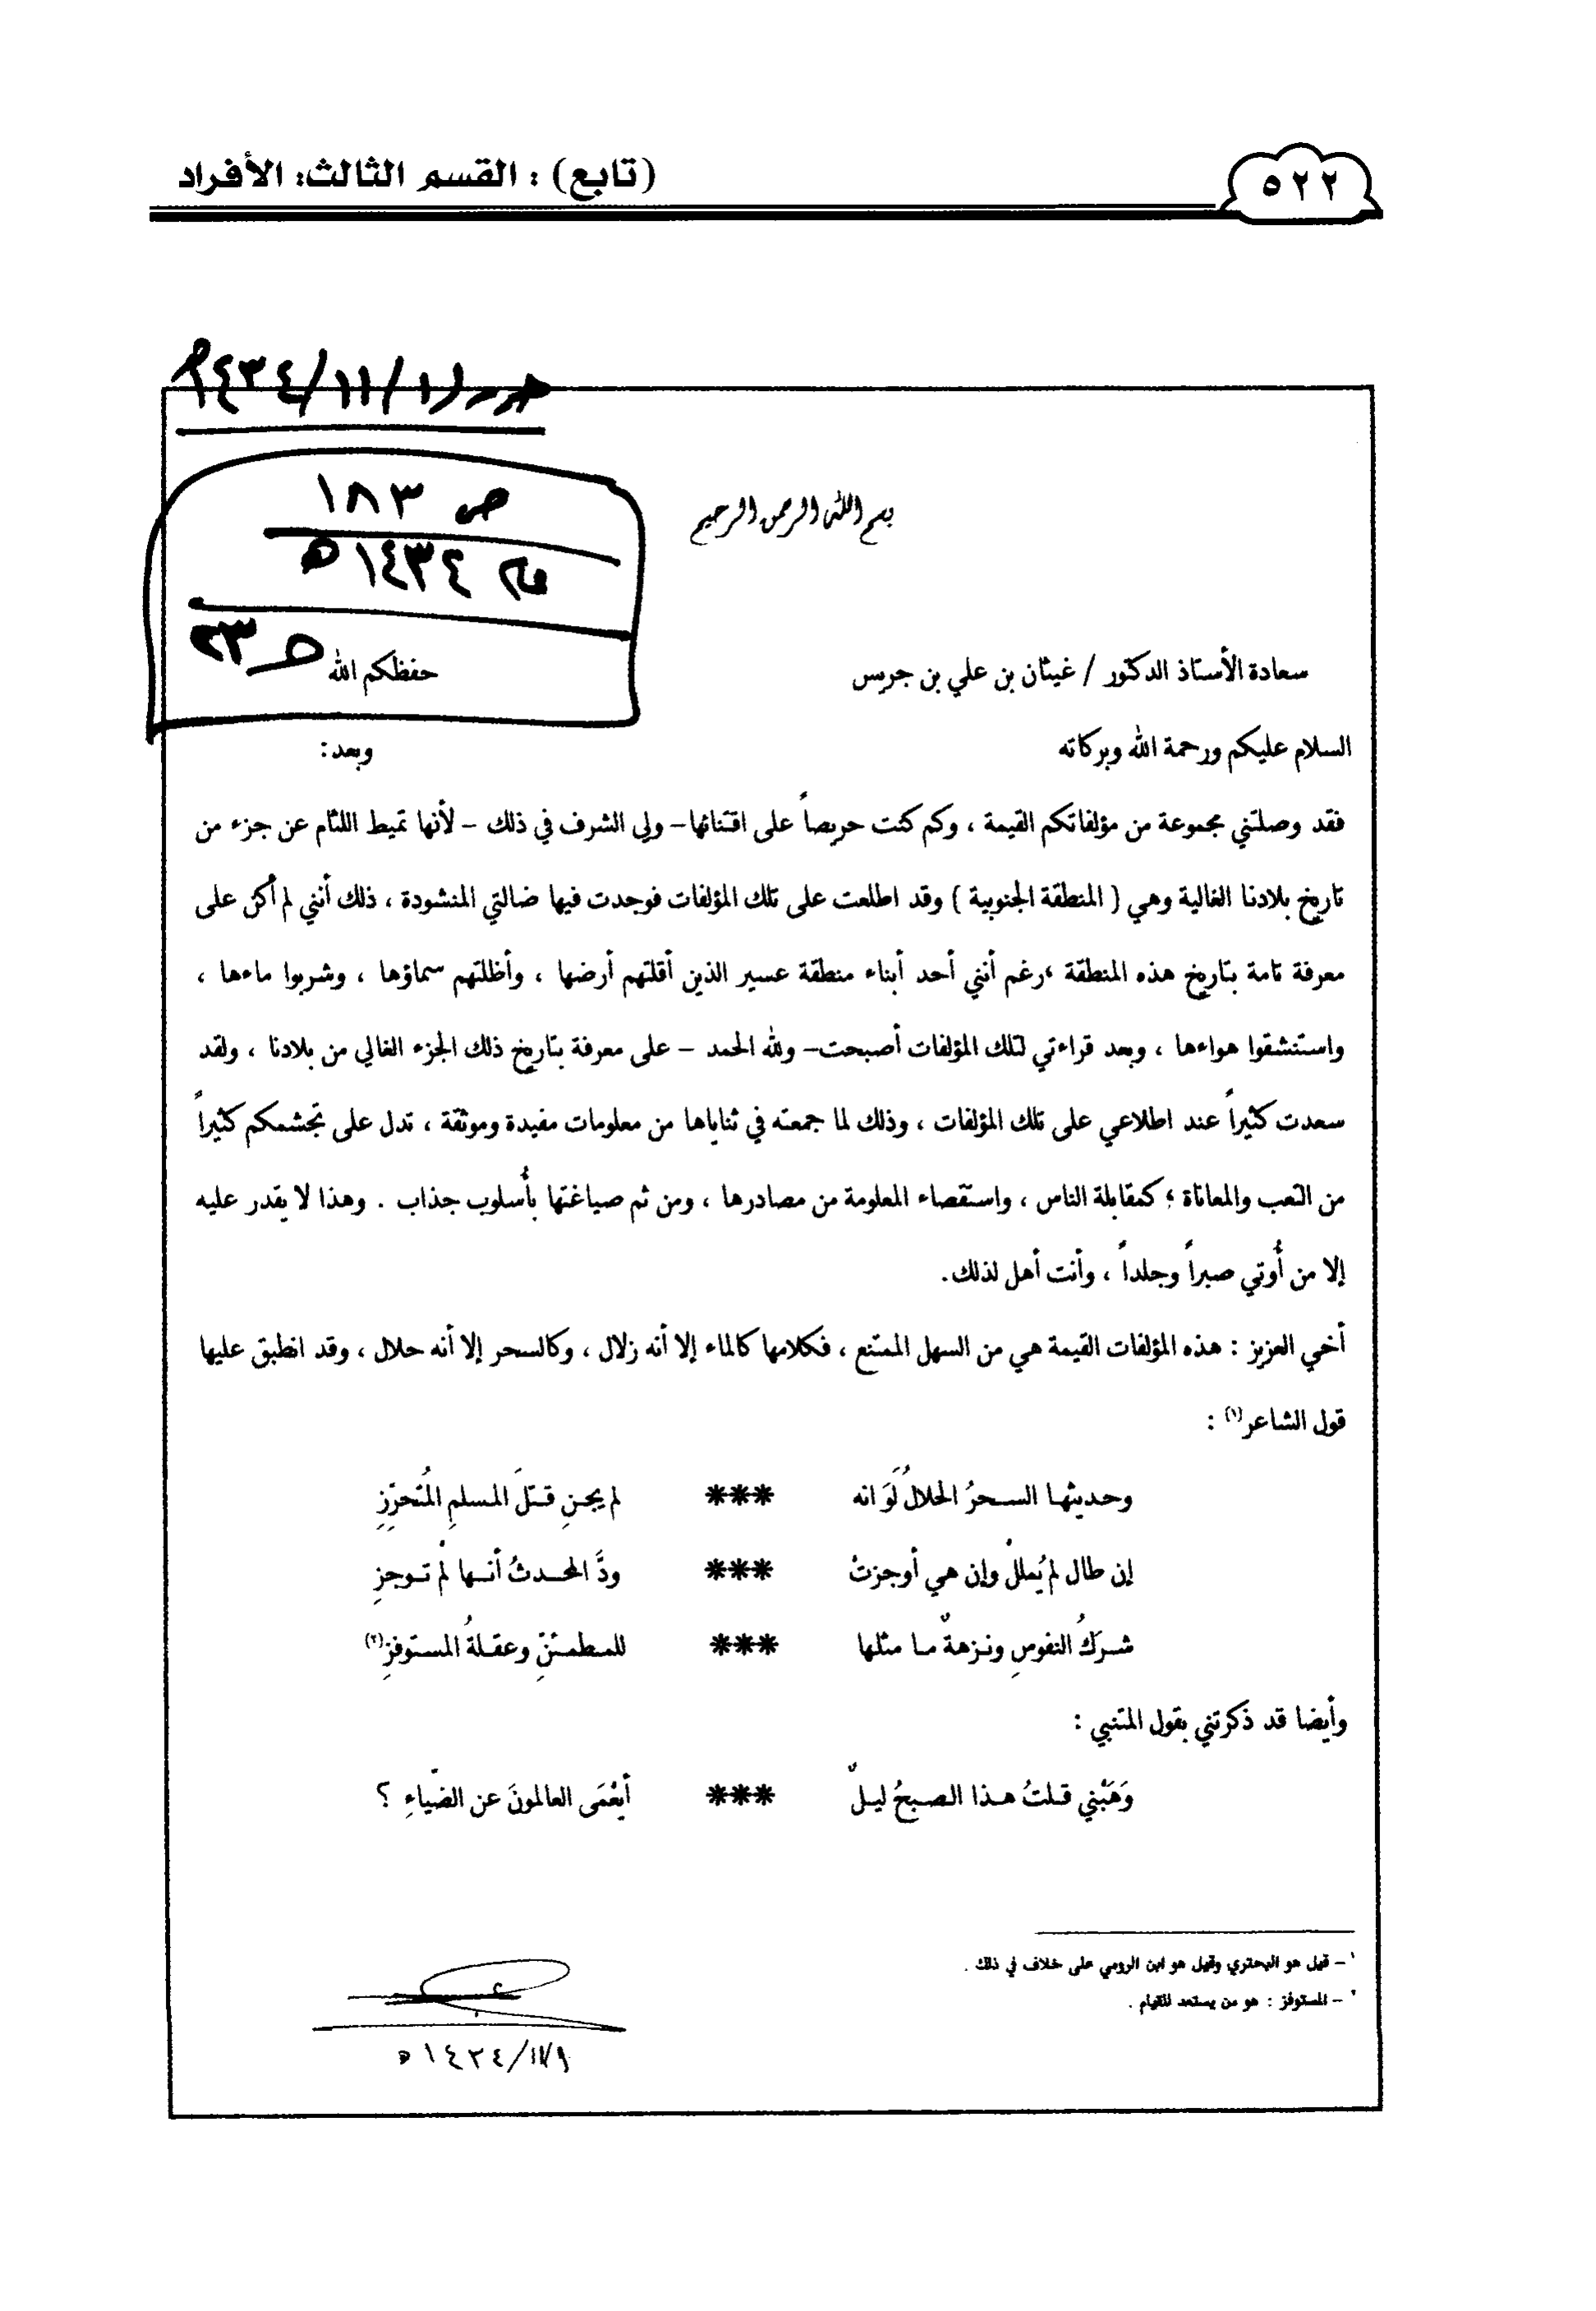 ٥٢٢
(تابع) : القسم الثالث: الأفراد
١٤٣٤/١١/١
ص ١٨٣
١٤٣٤ هـ
بسم الله الرحمن الرحيم
سعادة الأستاذ الدكتور / غيثان بن علي بن جريس حفظكم الله
السلام عليكم ورحمة الله وبركاته وبعد:
فقد وصلتني مجموعة من مؤلفاتكم القيمة ، وكم كنت حريصاً على اقتنائها– ولي الشرف في ذلك – لأنها تميط اللثام عن جزء من
تاريخ بلادنا الغالية وهي ( المنطقة الجنوبية ) وقد اطلعت على تلك المؤلفات فوجدت فيها ضالتي المنشودة ، ذلك أنني لم أكن على
معرفة تامة بتاريخ هذه المنطقة ،رغم أنني أحد أبناء منطقة عسير الذين أقلتهم أرضها ، وأظلتهم سماؤها ، وشربوا ماءها ،
واستنشقوا هواءها ، وبعد قراءتي لتلك المؤلفات أصبحت– ولله الحمد – على معرفة بتاريخ ذلك الجزء الغالي من بلادنا ، ولقد
سعدت كثيراً عند اطلاعي على تلك المؤلفات ، وذلك لما جمعته في ثناياها من معلومات مفيدة وموثقة ، تدل على تجشمكم كثيراً
من التعب والمعاناة ؛ كمقابلة الناس ، واستقصاء المعلومة من مصادرها ، ومن ثم صياغتها بأُسلوب جذاب . وهذا لا يقدر عليه
إلا من أُوتي صبراً وجلداً ، وأنت أهل لذلك.
أخي العزيز : هذه المؤلفات القيمة هي من السهل الممتنع ، فكلامها كالماء إلا أنه زلال ، وكالسحر إلا أنه حلال ، وقد انطبق عليها
قول الشاعر(١) :
وحديثها السحرُ الحلالُ لَوَ انه *** لم يجنِ قتلَ المسلمِ المُتحرّزِ
إن طال لم يُمللْ وإن هي أوجزتْ *** ودَّ المحدثُ أنها لمْ توجزِ
شركُ النفوسِ ونزهةٌ ما مثلها *** للمطمئنِّ وعقلةُ المستوفزِ(٢)
وأيضا قد ذكرتني بقول المتنبي :
وَهَبْني قلتُ هذا الصبحُ ليلٌ *** أيَعْمَى العالمونَ عن الضّياءِ ؟
١ – قيل هو البحتري وقيل هو ابن الرومي على خلاف في ذلك .
٢ – المستوفز : هو من يستعد للقيام .
١٤٣٤/١١/٩ هـ